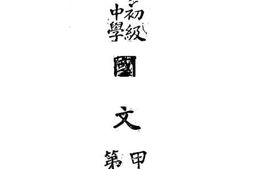 初級
中學
國
文
甲
第